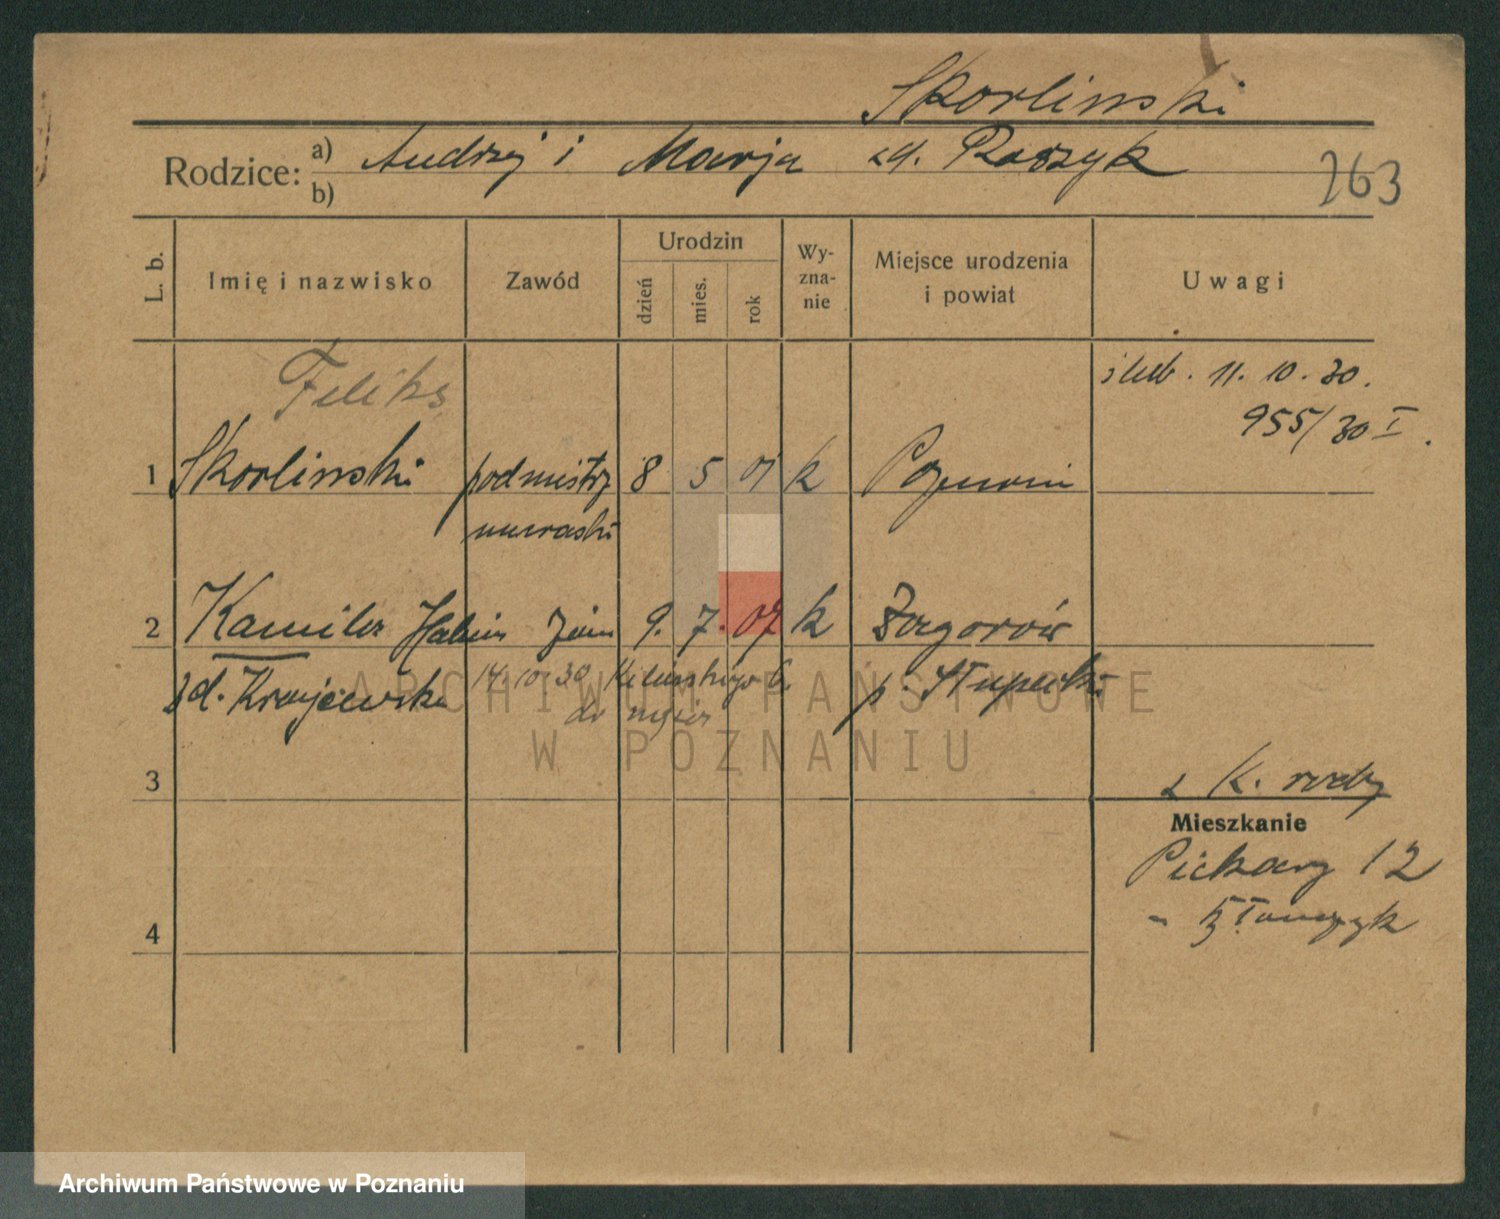 Skorlinski
Rodzice: a) Andrzej i Marja zd. Raszyk
b)
263
L. b.
Imię i nazwisko
Zawód
Urodzin
dzień
mies.
rok
Wy-
zna-
nie
Miejsce urodzenia
i powiat
Uwagi
Feliks
ślub. 11. 10. 30.
955/30 I.
1 Skorlinski podmistrz 8 5 01 k Poznań
murarski
2 Kamila Halina 9. 7. 07 k Zagorów
zd. Krajewska 14. 10. 30 Kilińskiego 6. p. Słupecki
do męża
3
z K. rodz
Mieszkanie
Piekary 12
4
ARCHIWUM PAŃSTWOWE
W POZNANIU
Archiwum Państwowe w Poznaniu